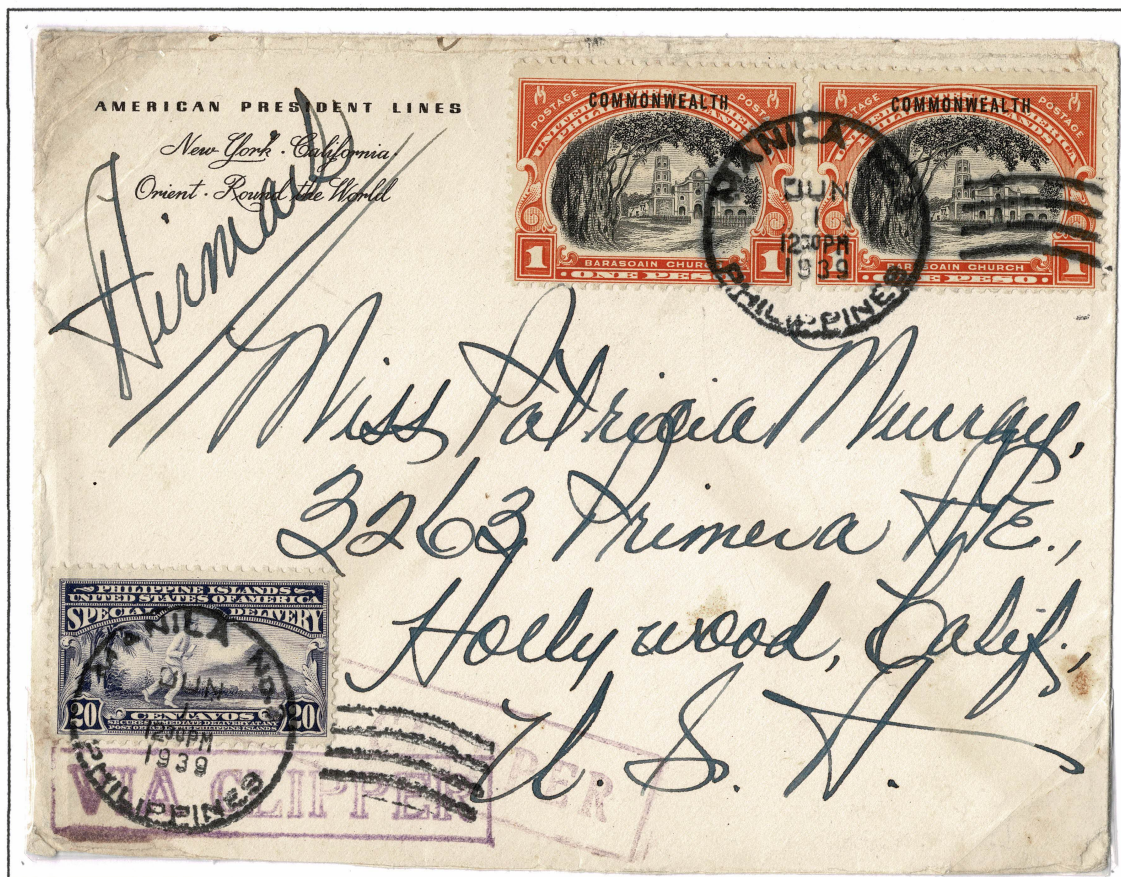 AMERICAN PRESIDENT LINES
New York · California
Orient · Round the World
Airmail
POSTAGE COMMONWEALTH POSTAGE
UNITED STATES OF AMERICA
PHILIPPINE ISLANDS
1 BARASOAIN CHURCH 1
· ONE PESO ·
POSTAGE COMMONWEALTH POSTAGE
UNITED STATES OF AMERICA
PHILIPPINE ISLANDS
1 BARASOAIN CHURCH 1
· ONE PESO ·
MANILA
JUN
1
12 30 PM
1939
PHILIPPINES
Miss Patricia Murray,
3263 Primera AvE.,
Hollywood, Calif.,
U. S. A.
PHILIPPINE ISLANDS
UNITED STATES OF AMERICA
SPECIAL DELIVERY
20 CENTAVOS 20
SECURES IMMEDIATE DELIVERY AT ANY
POST OFFICE IN THE PHILIPPINE ISLANDS
MANILA NO.
JUN
1
PM
1939
PHILIPPINES
VIA CLIPPER
PER